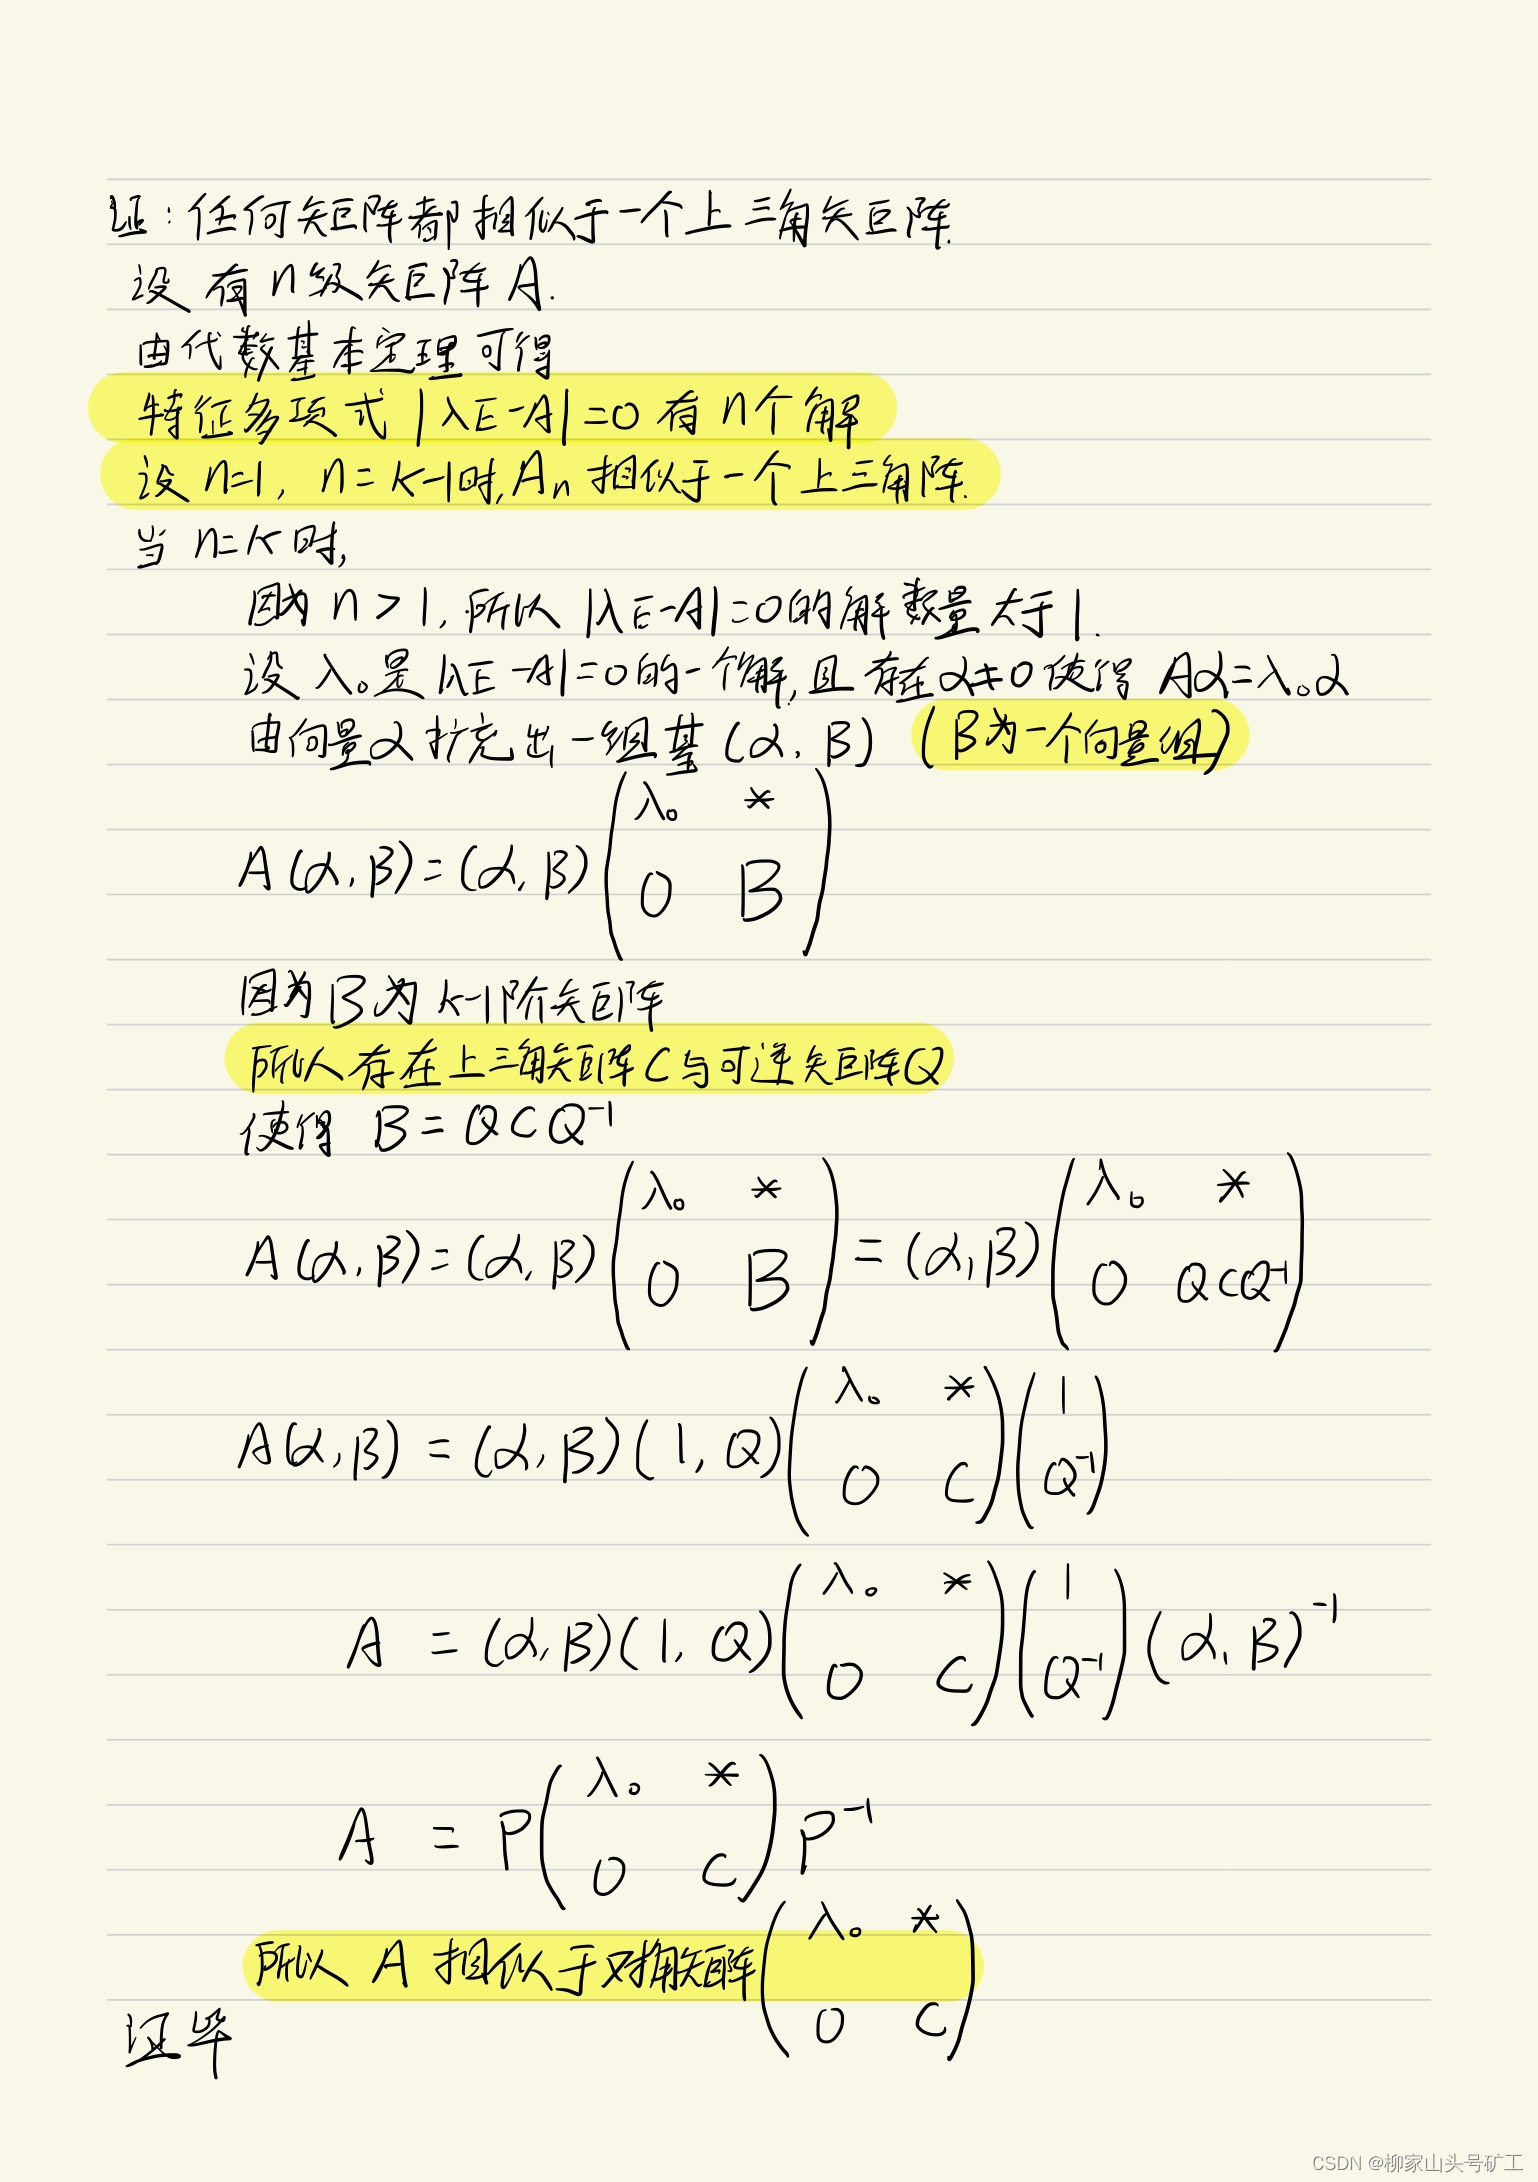 证:任何矩阵都相似于一个上三角矩阵.
设有n级矩阵A.
由代数基本定理可得
特征多项式 |λE-A|=0 有n个解
设 n=1, n=k-1时,Aₙ 相似于一个上三角阵.
当 n=k时,
因为 n>1,所以 |λE-A|=0的解数量大于1.
设λ₀是|λE-A|=0的一个解,且存在α≠0使得 Aα=λ₀α
由向量α扩充出一组基(α,β) (β为一个向量组)
A(α,β)=(α,β)(λ₀ *
0 B)
因为B为k-1阶矩阵
所以存在上三角矩阵C与可逆矩阵Q
使得 B=QCQ⁻¹
A(α,β)=(α,β)(λ₀ * = (α,β)(λ₀ *
0 B) 0 QCQ⁻¹)
A(α,β) = (α,β)(1,Q)(λ₀ * (1
0 C) Q⁻¹)
A = (α,β)(1,Q)(λ₀ * (1 (α,β)⁻¹
0 C) Q⁻¹)
A = P(λ₀ * P⁻¹
0 C)
所以 A 相似于对角矩阵(λ₀ *
0 C)
证毕
CSDN @柳家山头号矿工